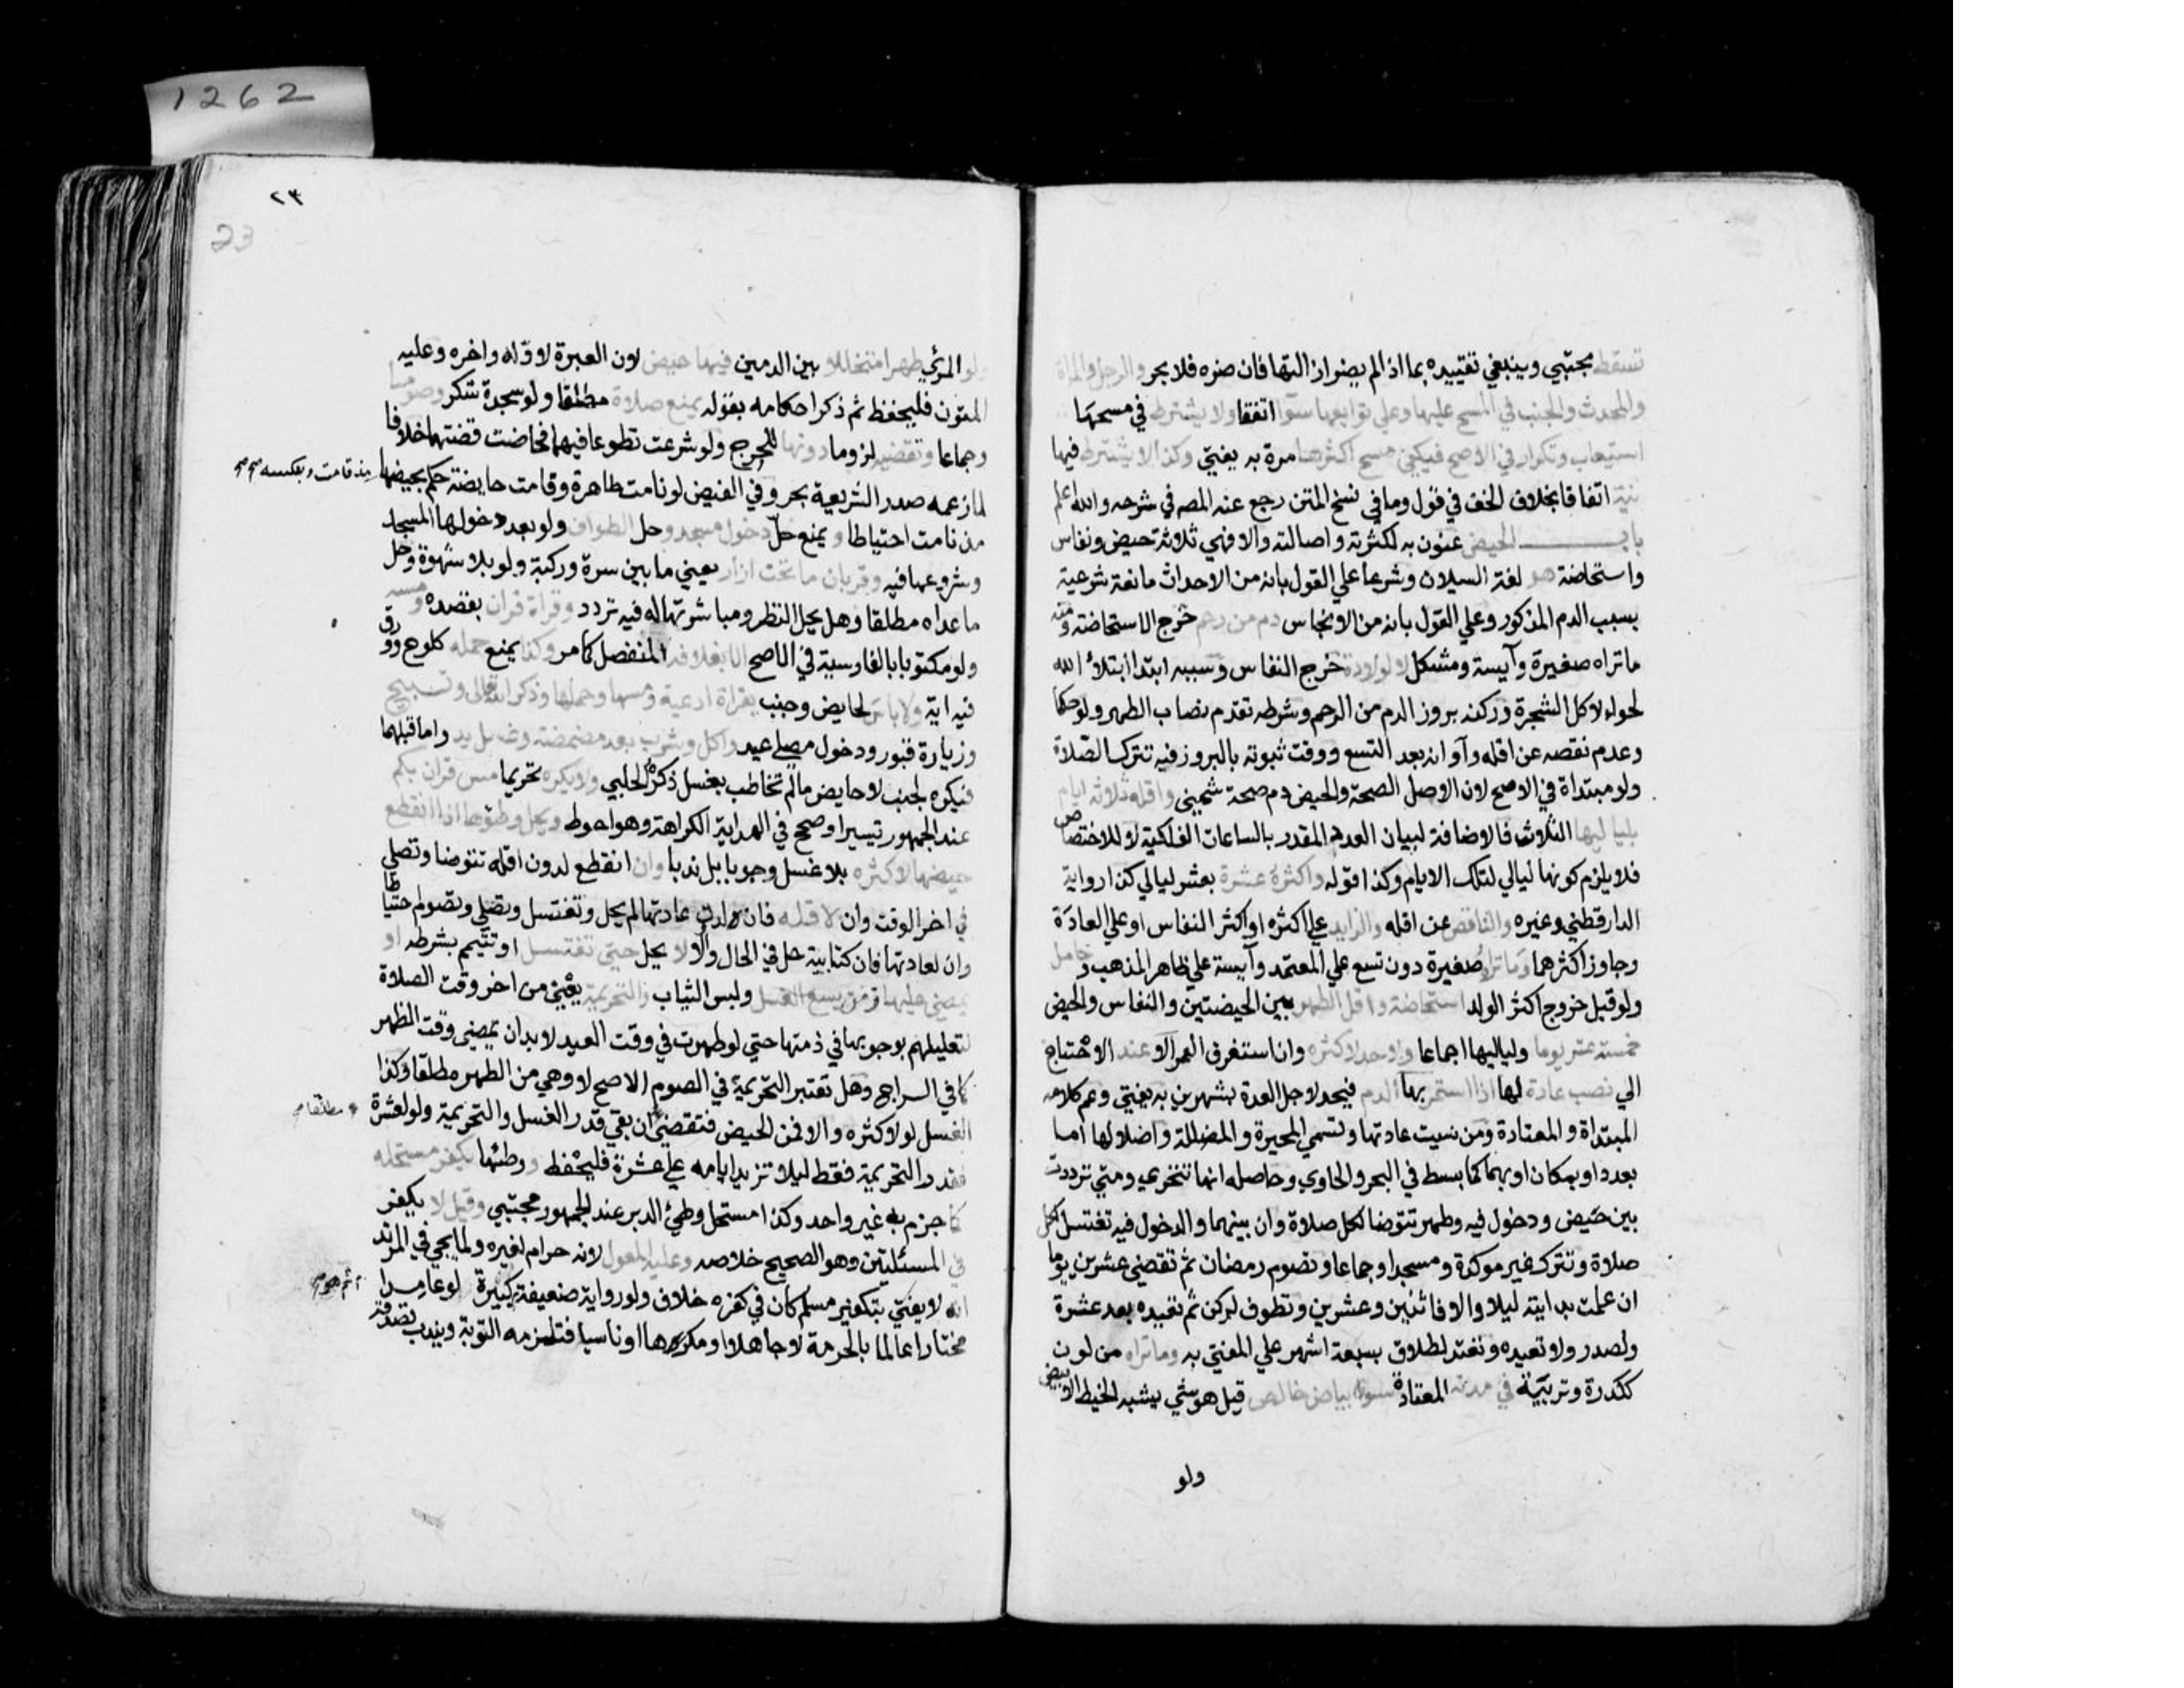 تسقط مجتبي وينبغي تقييده بما اذا لم يضر ازالتها فان ضره فلا بحر والرجل والمراة
والمحدث والجنب في المسح عليها وعلي توابعها سوا اتفاقا ولا يشترط في مسحها
استيعاب وتكرار في الاصح فيكفي مسح اكثرها مرة به يفتي وكذا لا يشترط فيها
نية اتفاقا بخلاف الخف في قول وما في نسخ المتن رجع عنه المص في شرحه والله اعلم
باب الحيض عنون به لكثرته واصالته والا فهي ثلاثة حيض ونفاس
واستحاضة هو لغة السيلان وشرعا علي القول بانه من الاحداث مانعة شرعية
بسبب الدم المذكور وعلي القول بانه من الانجاس دم من رحم خرج الاستحاضة ومنه
ما تراه صغيرة وآيسة ومشكل لا لولادة خرج النفاس وسببه ابتدا ابتلاء الله
لحواء لاكل الشجرة وركنه بروز الدم من الرحم وشرطه تقدم نصاب الطهر ولو حكما
وعدم نقصه عن اقله وآوانه بعد التسع ووقت ثبوته بالبروز فيه تترك الصلاة
ولو مبتداة في الاصح لان الاصل الصحة والحيض دم صحة شمني واقله ثلاثة ايام
بلياليها الثلاث فالاضافة لبيان العدد المقدر بالساعات الفلكية لا للاختصاص
فلا يلزم كونها ليالي لتلك الايام وكذا قوله واكثره عشرة بعشر ليالي كذا رواية
الدارقطني وغيره والناقص عن اقله والزايد علي اكثره او اكثر النفاس او علي العادة
وجاوز اكثرهما وما تراه صغيرة دون تسع علي المعتمد وآيسة علي ظاهر المذهب وحامل
ولو قبل خروج اكثر الولد استحاضة واقل الطهر بين الحيضتين والنفاس والحيض
خمسة عشر يوما ولياليها اجماعا ولا حد لاكثره وان استغرق العمر الا عند الاحتياج
الي نصب عادة لها اذا استمر بها الدم فيحد لاجل العدة بشهرين به يفتي وعم كلامه
المبتداة والمعتادة ومن نسيت عادتها وتسمي المحيرة والمضللة واضلالها اما
بعدد او بمكان او بهما كما بسط في البحر والحاوي وحاصله انها تتحري ومتي ترددت
بين حيض ودخول فيه وطهر تتوضا لكل صلاة وان بينهما والدخول فيه تغتسل لكل
صلاة وتترك غير موكدة ومسجدا وجماعا وتصوم رمضان ثم تقضي عشرين يوما
ان علمت بدايته ليلا والا فاثنين وعشرين وتطوف لركن ثم تعيده بعد عشرة
ولصدر ولا تعيده وتعتد لطلاق بسبعة اشهر علي المفتي به وما تراه من لون
ككدرة وتربية في مدته المعتادة سوي بياض خالص قيل هو شي يشبه الخيط الابيض
ولو
1262
٢٣
23
ولو المرئي طهرا متخللا بين الدمين فيها حيض لان العبرة لاوله واخره وعليه
المتون فليحفظ ثم ذكر احكامه بقوله يمنع صلاة مطلقا ولو سجدة شكر وصوما
وجماعا وتقضيه لزوما دونها للحرج ولو شرعت تطوعا فيهما فحاضت قضتهما خلافا
لما زعمه صدر الشريعة بحر وفي الفيض لو نامت طاهرة وقامت حايضة حكم بحيضها مذ قامت وبعكسه صح
مذ نامت احتياطا ويمنع حل دخول مسجد وحل الطواف ولو بعد دخولها المسجد
وشروعها فيه وقربان ما تحت ازار يعني ما بين سرة وركبة ولو بلا شهوة وحل
ما عداه مطلقا وهل يحل النظر ومباشرتها له فيه تردد وقراة قران بقصده ومسه
ولو مكتوبا بالفارسية في الاصح الا بغلافه المنفصل كما مر وكذا يمنع حمله كلوح وورق
فيه اية ولا باس لحايض وجنب بقراة ادعية ومسها وحملها وذكر الله تعالى وتسبيح
وزيارة قبور ودخول مصلي عيد واكل وشرب بعد مضمضة وغسل يد واما قبلهما
فيكره لجنب لا حايض ما لم تخاطب بغسل ذكره الحلبي ولا يكره تحريما مس قران بكم
عند الجمهور تيسيرا وصحح في الهداية الكراهة وهو احوط ويحل وطؤها اذا انقطع
حيضها لاكثره بلا غسل وجوبا بل ندبا وان انقطع لدون اقله تتوضا وتصلي
في اخر الوقت وان لاقله فان لدون عادتها لم يحل وتغتسل وتصلي وتصوم احتياطا
وان لعادتها فان كتابية حل في الحال والا لا يحل حتي تغتسل او تتيمم بشرطه او
يمضي عليها زمن يسع الغسل ولبس الثياب والتحريمة يعني من اخر وقت الصلاة
لتعليلهم بوجوبها في ذمتها حتي لو طهرت في وقت العيد لابد ان يمضي وقت الظهر
كما في السراج وهل تعتبر التحريمة في الصوم الاصح لا وهي من الطهر مطلقا وكذا
الغسل لو لاكثره والا فمن الحيض فتقضي ان بقي قدر الغسل والتحريمة ولو لعشرة مطلقا
فقدر التحريمة فقط ليلا تزيد ايامه علي عشرة فليحفظ ووطئها يكفر مستحله
كما جزم به غير واحد وكذا مستحل وطي الدبر عند الجمهور مجتبي وقيل لا يكفر
في المسئلتين وهو الصحيح خلاصه وعليه المعول لانه حرام لغيره ولما يجي في المرتد
انه لا يفتي بتكفير مسلم كان في كفره خلاف ولو رواية ضعيفة ثم هو كبيرة لو عامدا
مختارا عالما بالحرمة لا جاهلا او مكرها او ناسيا فتلزمه التوبة ويندب تصدقه